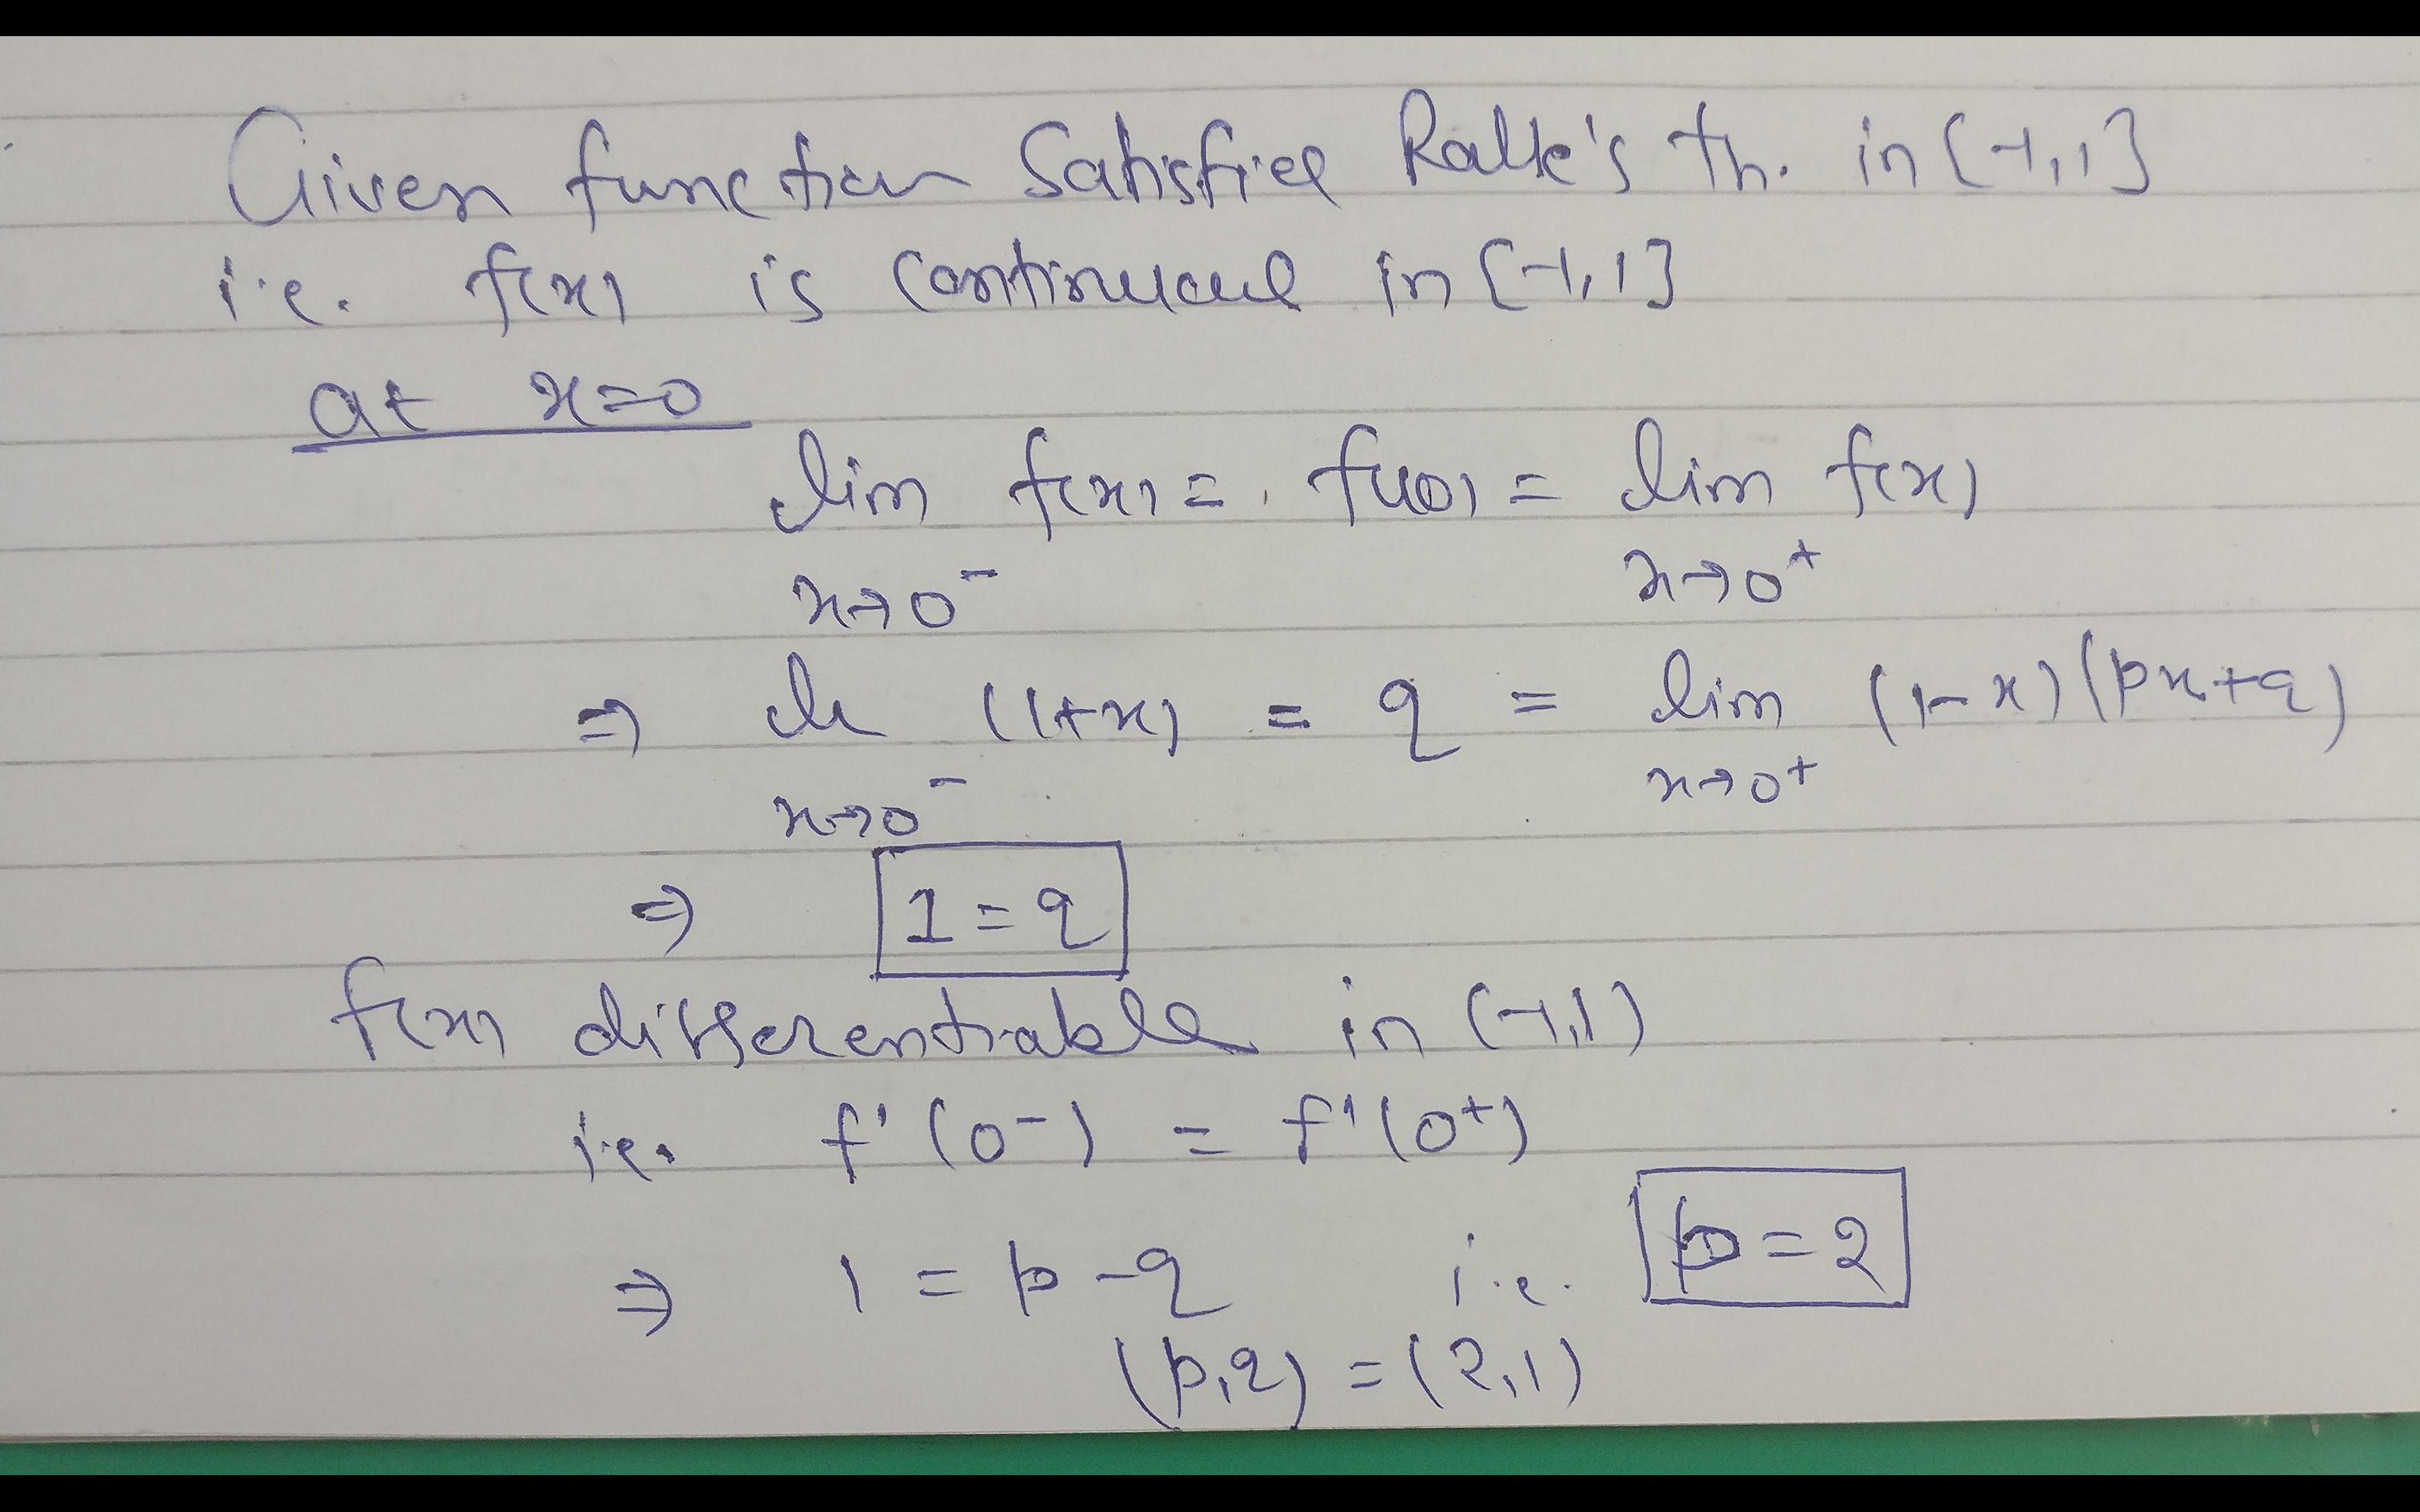 Given function satisfies Rolle's th. in [-1,1]
i.e. f(x) is continuous in [-1,1]
at x=0
lim f(x) = f(0) = lim f(x)
x→0⁻ x→0⁺
⇒ lim (1+x) = q = lim (1-x)(px+q)
x→0⁻ x→0⁺
⇒ 1=q
f(x) differentiable in (-1,1)
i.e. f'(0⁻) = f'(0⁺)
⇒ 1 = p-q i.e. p=2
(p,q) = (2,1)